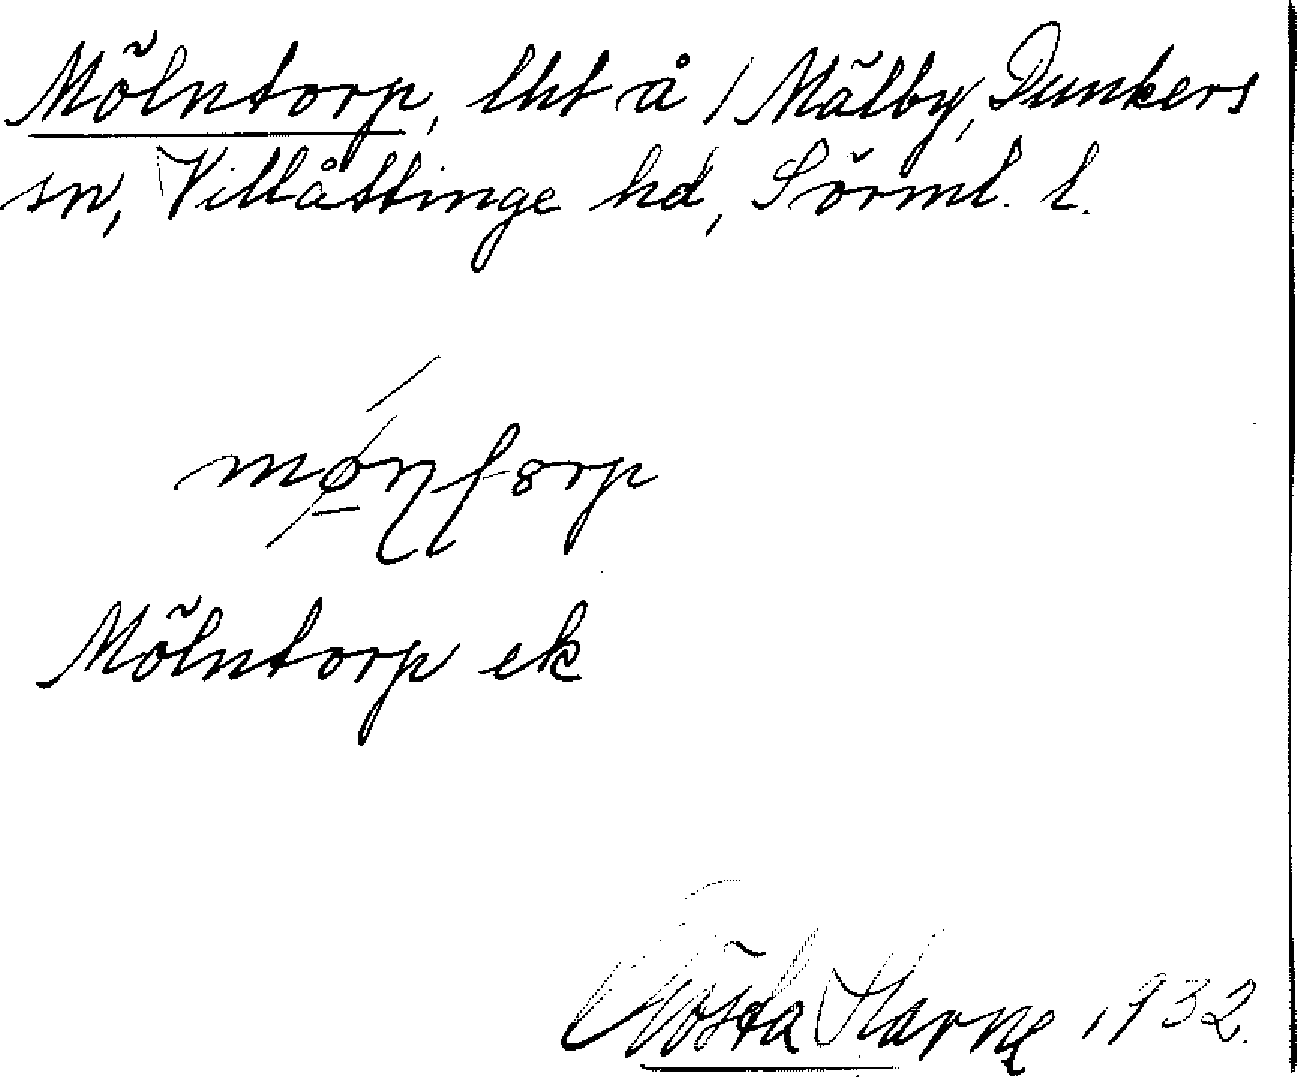 Mölntorp, lht å / Mälby, Dunkers
sn, Villåttinge hd, Sörml. l.
Mölntorp ek
Gösta 1932.